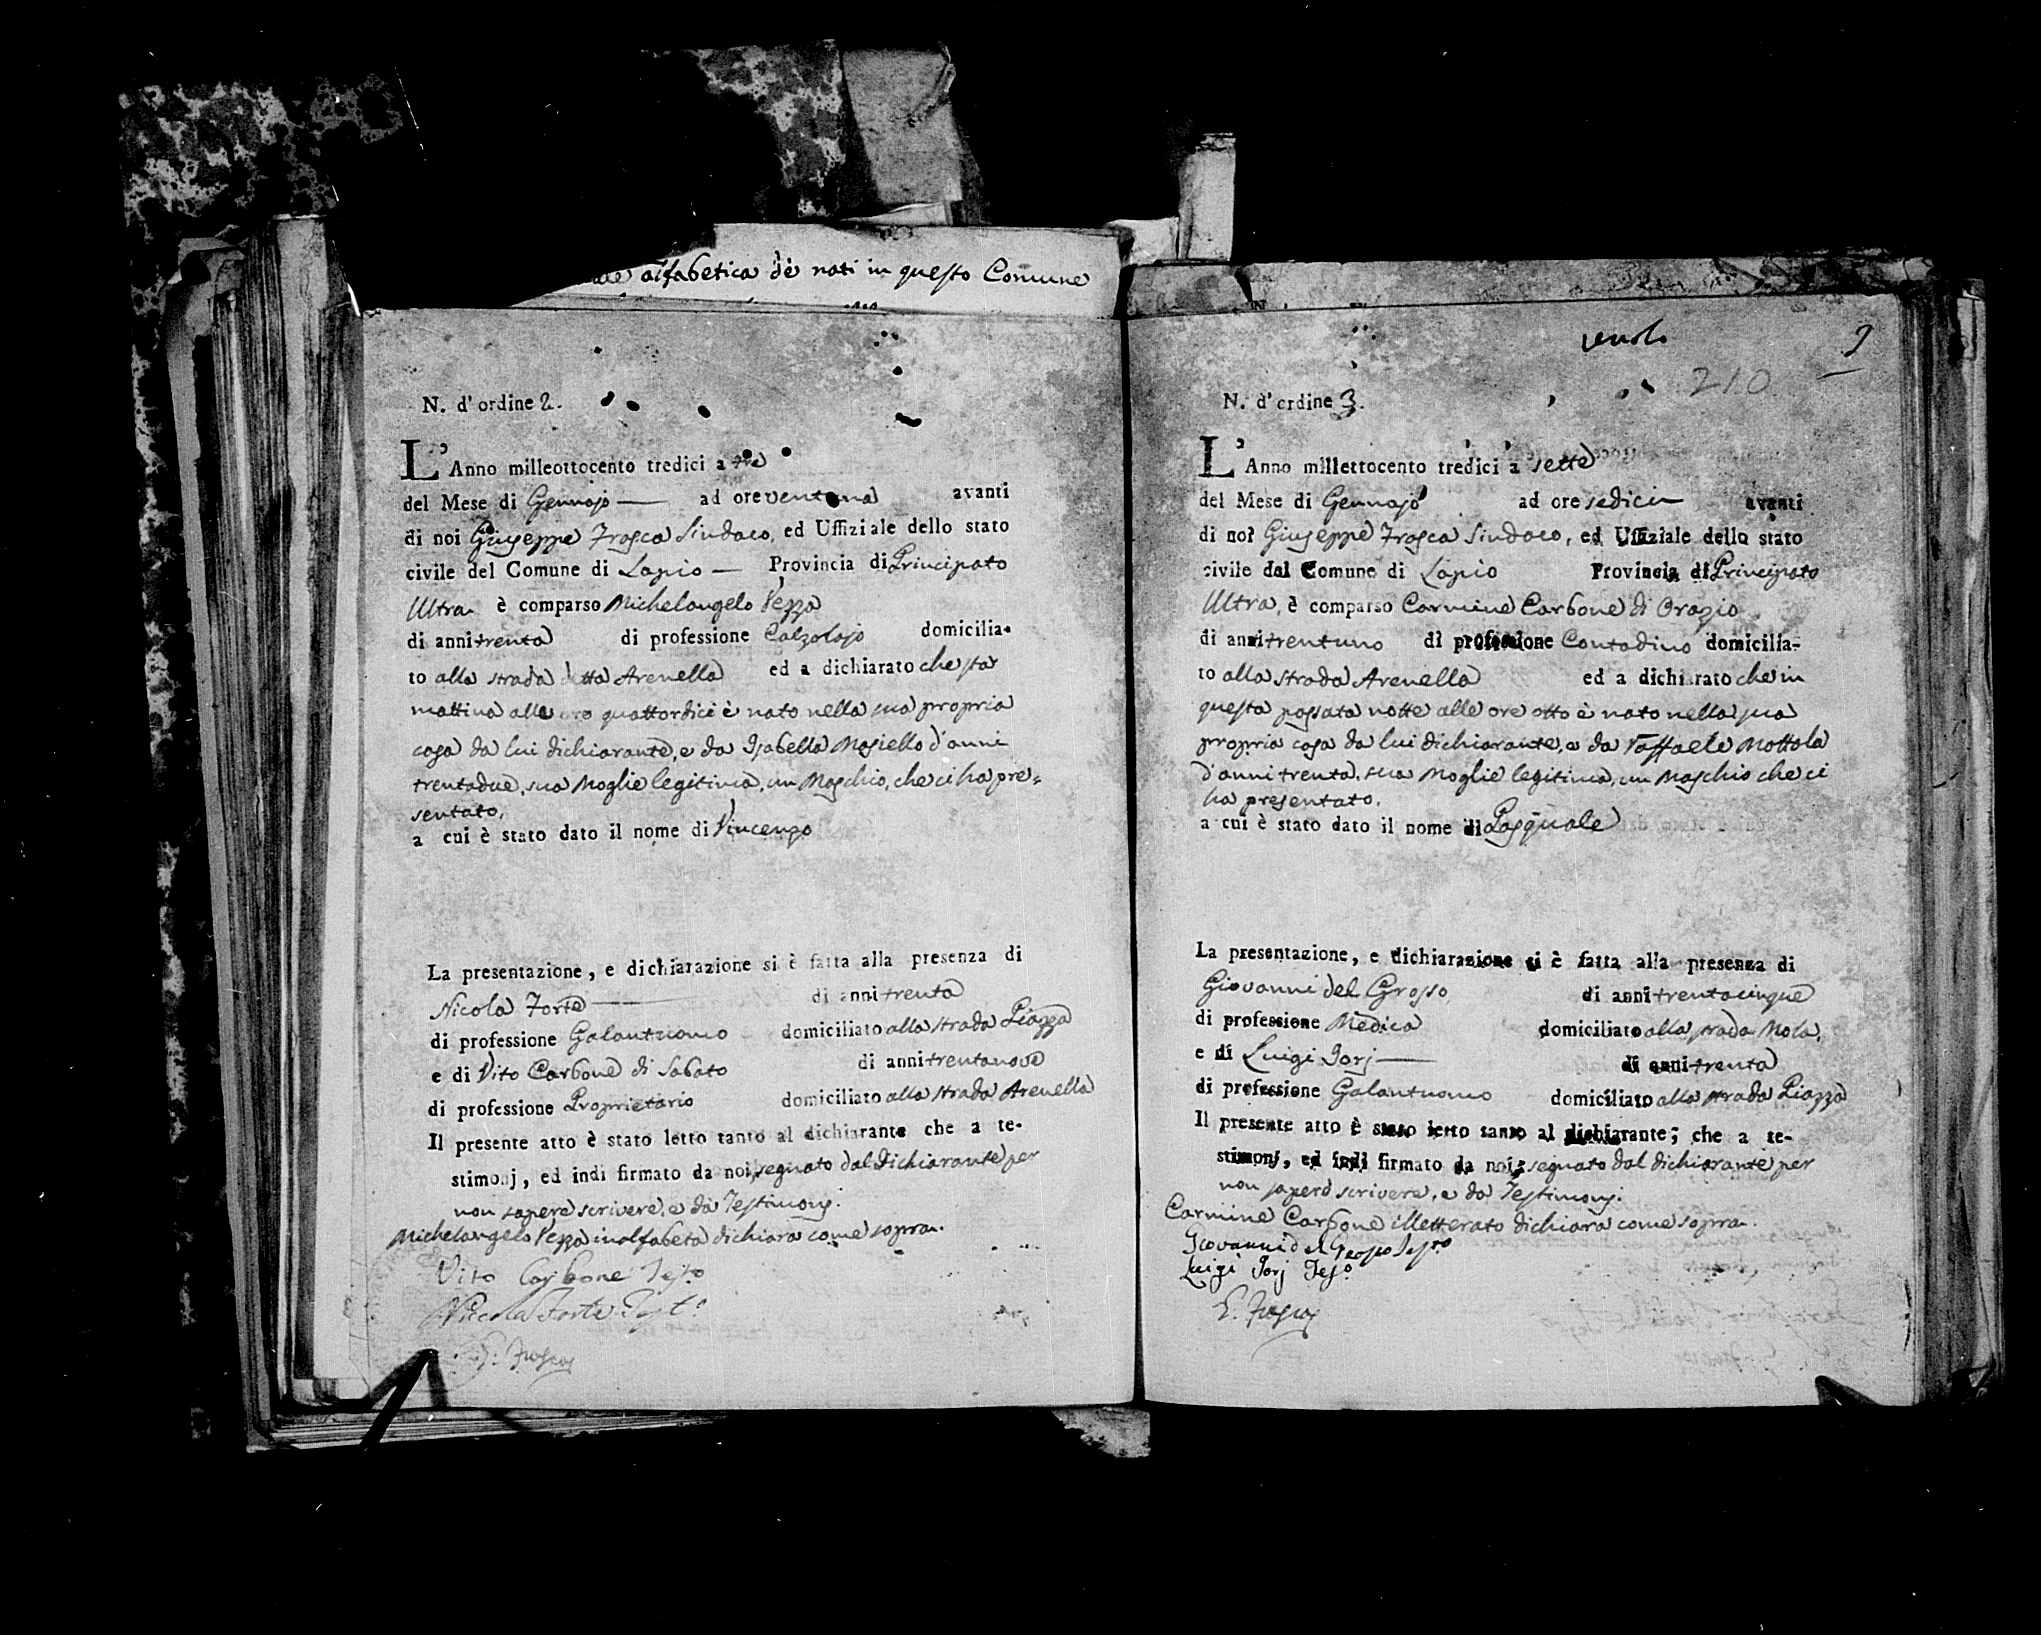 alfabetica dè nati in questo Comune
N. d'ordine 2.
L'Anno milleottocento tredici a tre
del Mese di Gennajo — ad ore ventuna avanti
di noi Giuseppe Frosca Sindaco, ed Uffiziale dello stato
civile del Comune di Lapio — Provincia di Principato
Ultra è comparso Michelangelo Pezza
di anni trenta di professione Calzolajo domicilia-
to alla strada detta Arenella ed a dichiarato che sta
mattina alle ore quattordici è nato nella sua propria
casa da lui dichiarante, e da Isabella Masiello d'anni
trentadue, sua Moglie legitima, un Maschio, che ci ha pre=
sentato,
a cui è stato dato il nome di Vincenzo
La presentazione, e dichiarazione si è fatta alla presenza di
Nicola Forte — di anni trenta
di professione Galantuomo domiciliato alla strada Piazza
e di Vito Carbone di Sabato di anni trentanove
di professione Proprietario domiciliato alla strada Arenella
Il presente atto è stato letto tanto al dichiarante che a te-
stimonj, ed indi firmato da noi, segnato dal Dichiarante per
non sapere scrivere, e da Testimonj.
Michelangelo Pezza inalfabeta dichiara come sopra.
Vito Carbone Testo
Nicola Forte Testo
G. Frosca
venti
2
210
N. d'ordine 3.
L'Anno millettocento tredici a sette
del Mese di Gennajo ad ore sedici avanti
di noi Giuseppe Frosca Sindaco, ed Uffiziale dello stato
civile del Comune di Lapio Provincia di Principato
Ultra, è comparso Carmine Carbone di Orazio
di anni trentuno di professione Contadino domicilia-
to alla strada Arenella ed a dichiarato che in
questa passata notte alle ore otto è nato nella sua
propria casa da lui dichiarante, e da Raffaele Mottola
d'anni trenta, sua Moglie legitima, un Maschio che ci
ha presentato.
a cui è stato dato il nome di Pasquale
La presentazione, e dichiarazione si è fatta alla presenza di
Giovanni del Grosso di anni trentacinque
di professione Medica domiciliato alla strada Mola,
e di Luigi Jorj — di anni trenta
di professione Galantuomo domiciliato alla strada Piazza
Il presente atto è stato letto tanto al dichiarante, che a te-
stimonj, ed indi firmato da noi, segnato dal dichiarante per
non sapere scrivere, e da Testimonj.
Carmine Carbone illetterato dichiara come sopra.
Giovanni del Grosso Testo
Luigi Jorj Testo
G. Frosca